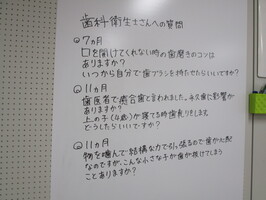 歯科衛生士さんへの質問
◎7ヵ月
口を開けてくれない時の歯磨きのコツは
ありますか?
いつから自分で歯ブラシを持たせたらいいですか?
◎11ヵ月
歯医者で癒合歯と言われました。永久歯に影響か
ありますか?
上の子(4歳)が寝てる時歯ぎしりをします
どうしたらいいですか?
◎11ヵ月
物を噛んで結構な力で引っ張るので歯が心配
なのですが、こんな小さな子が歯が抜けてしまう
ことありますか?